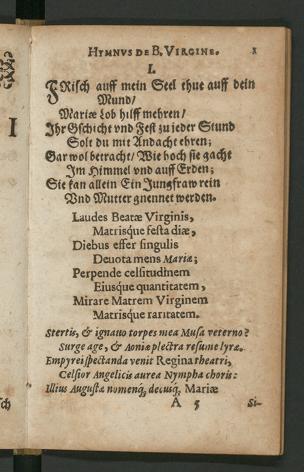 HYMNVS DE B. VIRGINE.
I.
FRisch auff mein Seel thue auff dein
Mund/
Mariæ Lob hilff mehren/
Ihr Gschicht vnd Fest zu jeder Stund
Solt du mit Andacht ehren;
Gar wol betracht/ Wie hoch sie gacht
Im Himmel vnd auff Erden;
Sie kan allein Ein Jungfraw rein
Vnd Mutter gnennet werden.
Laudes Beatæ Virginis,
Matrisque festa diæ,
Diebus effer singulis
Deuota mens Mariæ;
Perpende celsitudinem
Eiusque quantitatem,
Mirare Matrem Virginem
Matrisque raritatem.
Stertis, & ignauo torpes mea Musa veterno?
Surge age, & Aoniæ plectra resume lyræ.
Empyrei spectanda venit Regina theatri,
Celsior Angelicis aurea Nympha choris:
Illius Augustæ nomenq́, decusq́, Mariæ
A 5 Si-
I
sch